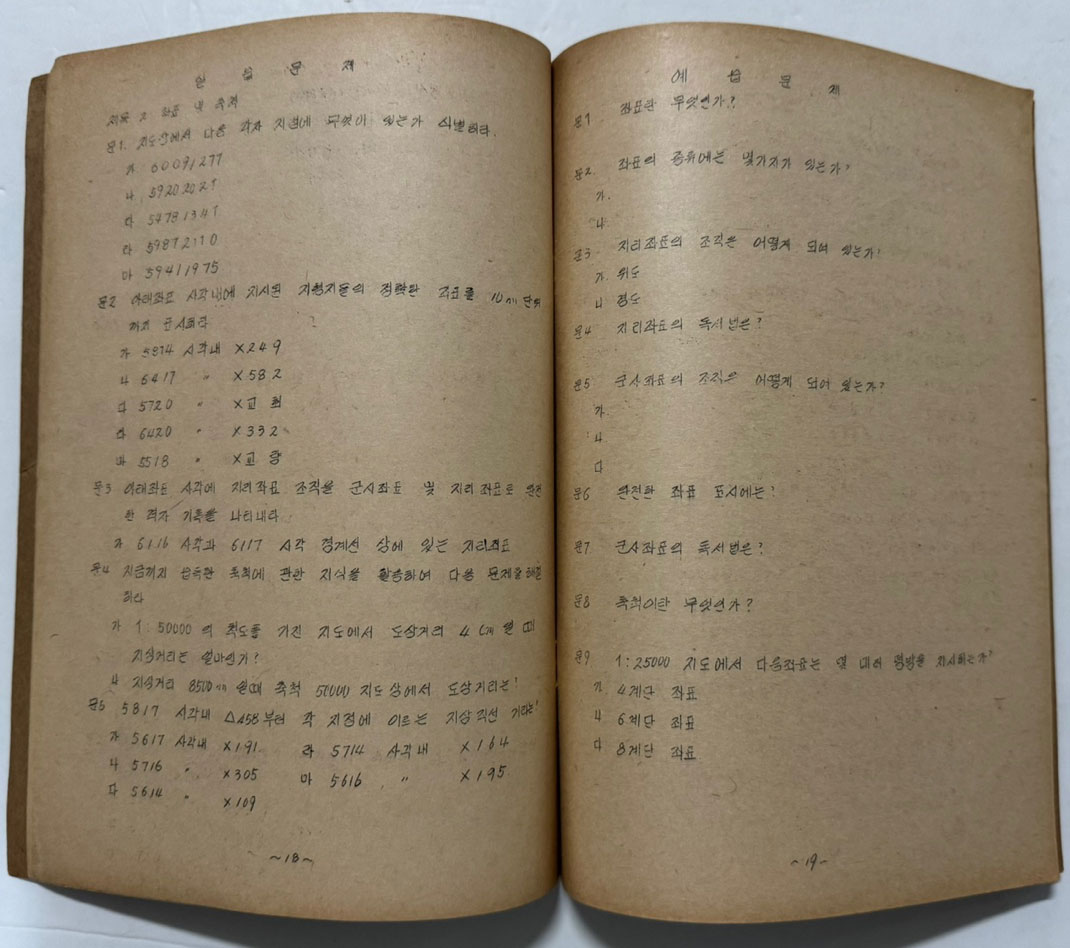 연 습 문 제
제목 2 좌표 및 축척
문1. 지도상에서 다음 각자 지점에 무엇이 있는가 식별하라.
가 60091277
나 59202021
다 54781341
라 59872110
마 59411975
문2 아래좌표 사각내에 지시된 지형지물의 정확한 좌표를 10m 단위
까지
가 5814 사각내 ×249
나 6417 〃 ×582
다 5720 〃 ×교회
라 6420 〃 ×332
마 5518 〃 ×교량
문3 아래좌표 사각에 지리좌표 조직을 군사좌표 및 지리좌표로 완전
한 격자 기록을 나타내라
가 6116 사각과 6117 사각 경계선 상에 있는 지리좌표
문4 지금까지 습득한 축척에 관한 지식을 활용하여 다음 문제를 해결
하라
가 1:50000 의 척도를 가진 지도에서 도상거리 4cm 일 때
지상거리는 얼마인가?
나 지상거리 8500m 일때 축척 50000 지도상에서 도상거리는?
문5 5817 사각내 △458부터 각 지점에 이르는 지상직선 거리는?
가 5617 사각내 ×191 라 5714 사각내 ×164
나 5716 〃 ×305 마 5616 〃 ×195
다 5614 〃 ×109
~18~
예 습 문 제
문1. 좌표란 무엇인가?
문2. 좌표의 종류에는 몇가지가 있는가?
가.
나
문3 지리좌표의 조직은 어떻게 되어 있는가?
가. 위도
나 경도
문4 지리좌표의 독서법은?
문5 군사좌표의 조직은 어떻게 되어 있는가?
가
나
다
문6 완전한 좌표 표시에는?
문7 군사좌표의 독서법은?
문8 축척이란 무엇인가?
문9 1:25000 지도에서 다음좌표는 몇 평방을 지시하는가?
가 4계단 좌표
나 6계단 좌표
다 8계단 좌표
~19~